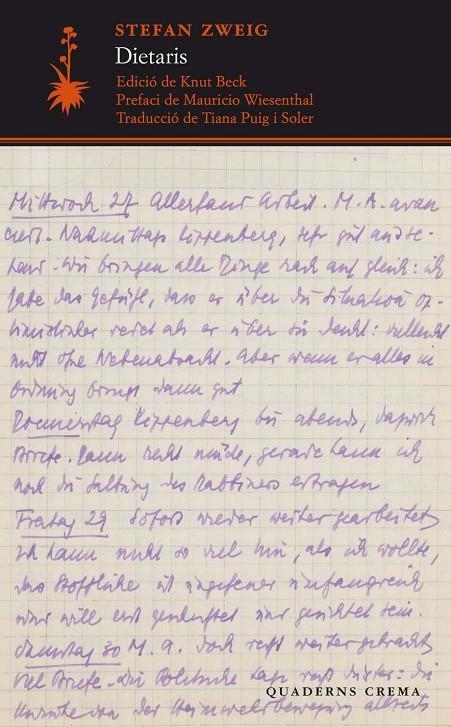 STEFAN ZWEIG
Dietaris
Edició de Knut Beck
Prefaci de Mauricio Wiesenthal
Traducció de Tiana Puig i Soler
Mittwoch 27 Allerhand Arbeit. M. A. avan
ciert. Nachmittags Kippenberg, sehr gut und se-
Wir bringen alle Dinge rasch auf gleich: ich
habe das Gefühl, dass er über die Situation op-
timistischer als er über sie denkt: vielleicht
nicht ohne Nebenabsicht. Aber wenn er alles in
Ordnung bringt dann gut
Donnerstag Kippenberg bis abends, dazwisch
Briefe. Dann recht müde, gerade kann ich
noch die des Rabbiners ertragen
Freitag 29 Sofort wieder weitergearbeitet
ich kann nicht so viel hin, als ich wollte,
das Stoffliche ist ungeheuer umfangreich
und will erst und gesichtet sein.
Samstag 30 M. A. doch recht weitergebracht
Viel Briefe. die Politische Lage düster: die
von der Heimwehrbewegung
QUADERNS CREMA